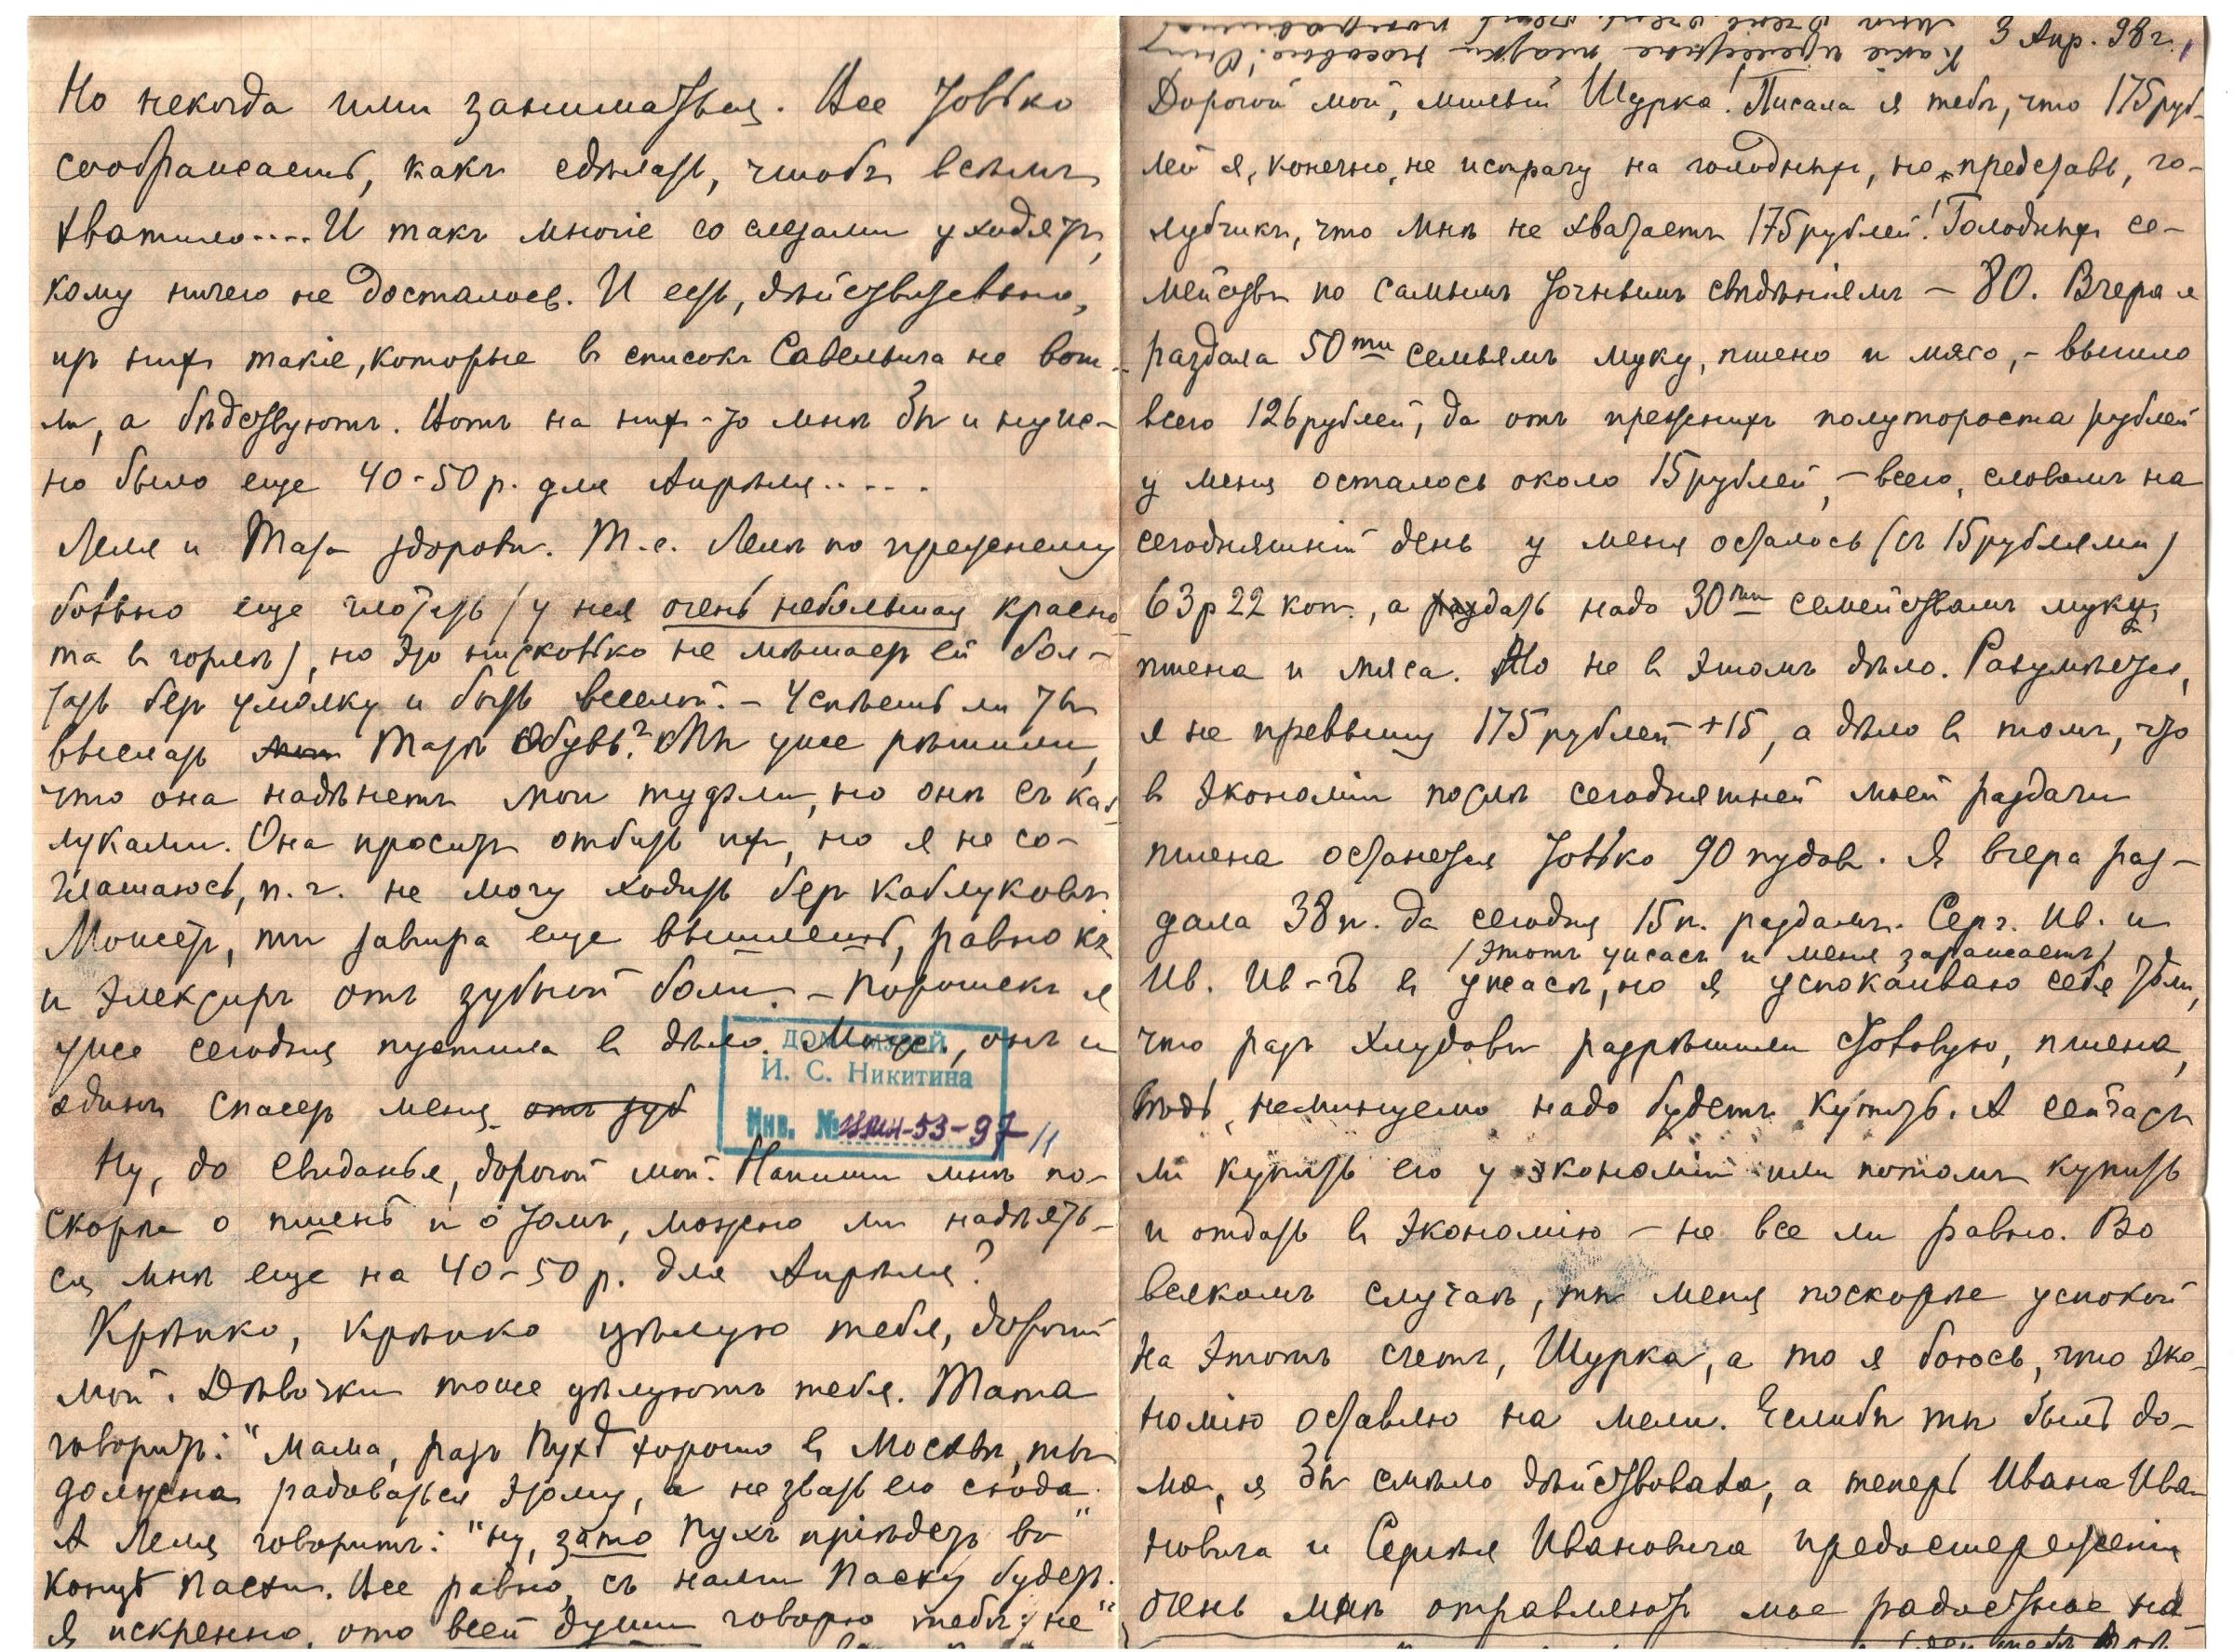 Но некогда ими заниматься. Все только
соображаешь, какъ сдѣлать, чтобы всѣмъ
хватило.... И такъ многіе со слезами уходятъ,
кому ничего не досталось. И есть, дѣйствительно,
изъ нихъ такіе, которые въ списокъ Савельича не вош-
ли, а бѣдствуютъ. Вотъ на нихъ-то мнѣ бы и нуж-
но было еще 40-50 р. для Апрѣля....
Леля и Тата здоровы. Т.е. Лелѣ по прежнему
больно еще глотать (у нея очень небольшая красно-
та въ горлѣ), но это нисколько не мѣшаетъ ей бол-
тать безъ умолку и быть веселой. - Успѣешь ли ты
выслать Татѣ обувь? Мы уже рѣшили,
что она надѣнетъ мои туфли, но онѣ съ каб-
луками. Она проситъ отбить ихъ, но я не со-
глашаюсь, п. ч. не могу ходить безъ каблуковъ.
Можетъ, ты завтра еще вышлешь, равно какъ
и элексиръ отъ зубной боли. - Порошекъ я
уже сегодня пустила въ дѣло. Можетъ, онъ и
одинъ спасетъ меня отъ зуб
ДОМ-МУЗЕЙ
И. С. Никитина
Инв. № 53-97/1
Ну, до свиданья, дорогой мой. Напиши мнѣ по-
скорѣе о пшенѣ и о томъ, можно ли надѣять-
ся мнѣ еще на 40-50 р. для Апрѣля?
Крѣпко, крѣпко цѣлую тебя, дорогой
мой. Дѣвочки тоже цѣлуютъ тебя. Тата
говоритъ: "Мама, разъ Пухѣ хорошо въ Москвѣ, ты
должна радоваться этому, а не звать его сюда.
А Леля говоритъ: "Ну, зато Пухъ пріѣдетъ въ"
концѣ Пасхи. Все равно, съ нами Пасху будетъ.
Я искренно, ото всей души говорю тебѣ: не"
3 Апр. 98 г.
Какіе прелестные
мнѣ очень, очень понравились
Дорогой мой, милый Шурка! Писала я тебѣ, что 175 руб-
лей я, конечно, не истрачу на голодныхъ, но представь, го-
лубчикъ, что мнѣ не хватаетъ 175 рублей! Голодныхъ се-
мействъ по самымъ точнымъ свѣдѣніямъ - 80. Вчера я
раздала 50ти семьямъ муку, пшено и мясо, - вышло
всего 126 рублей, да отъ прежнихъ полутораста рублей
у меня осталось около 15 рублей, - всего, словомъ на
сегодняшній день у меня осталось (съ 15 рублями)
63 р 22 коп., а раздать надо 30ти семействамъ муку,
пшена и мяса. Но не въ этомъ дѣло. Разумѣется,
я не превышу 175 рублей + 15, а дѣло въ томъ, что
въ экономіи послѣ сегодняшней моей раздачи
пшена останется только 90 пудовъ. Я вчера раз-
дала 38 п. да сегодня 15 п. раздамъ. Серг. Ив. и
(этотъ ужасъ и меня заражаетъ)
Ив. Ив-чъ въ ужасѣ, но я успокаиваю себя тѣмъ,
что разъ Хлудовы разрѣшили столовую, пшена,
вѣдь, неминуемо надо будетъ купить. А сейчасъ
ли купить его у экономіи или потомъ купить
и отдать въ экономію - не все ли равно. Во
всякомъ случаѣ, ты меня поскорѣе успокой
на этотъ счетъ, Шурка, а то я боюсь, что эко-
номію оставлю на мели. Еслибы ты былъ до-
ма, я бы смѣло дѣйствовала, а теперь Ивана Ива-
новича и Сергѣя Ивановича предостереженія
очень мнѣ отравляютъ мое радостное на-